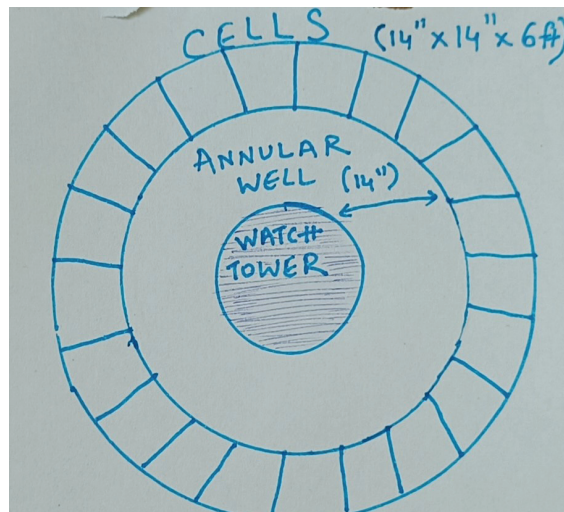 CELLS (14" x 14" x 6ft)
ANNULAR
WELL (14")
WATCH
TOWER